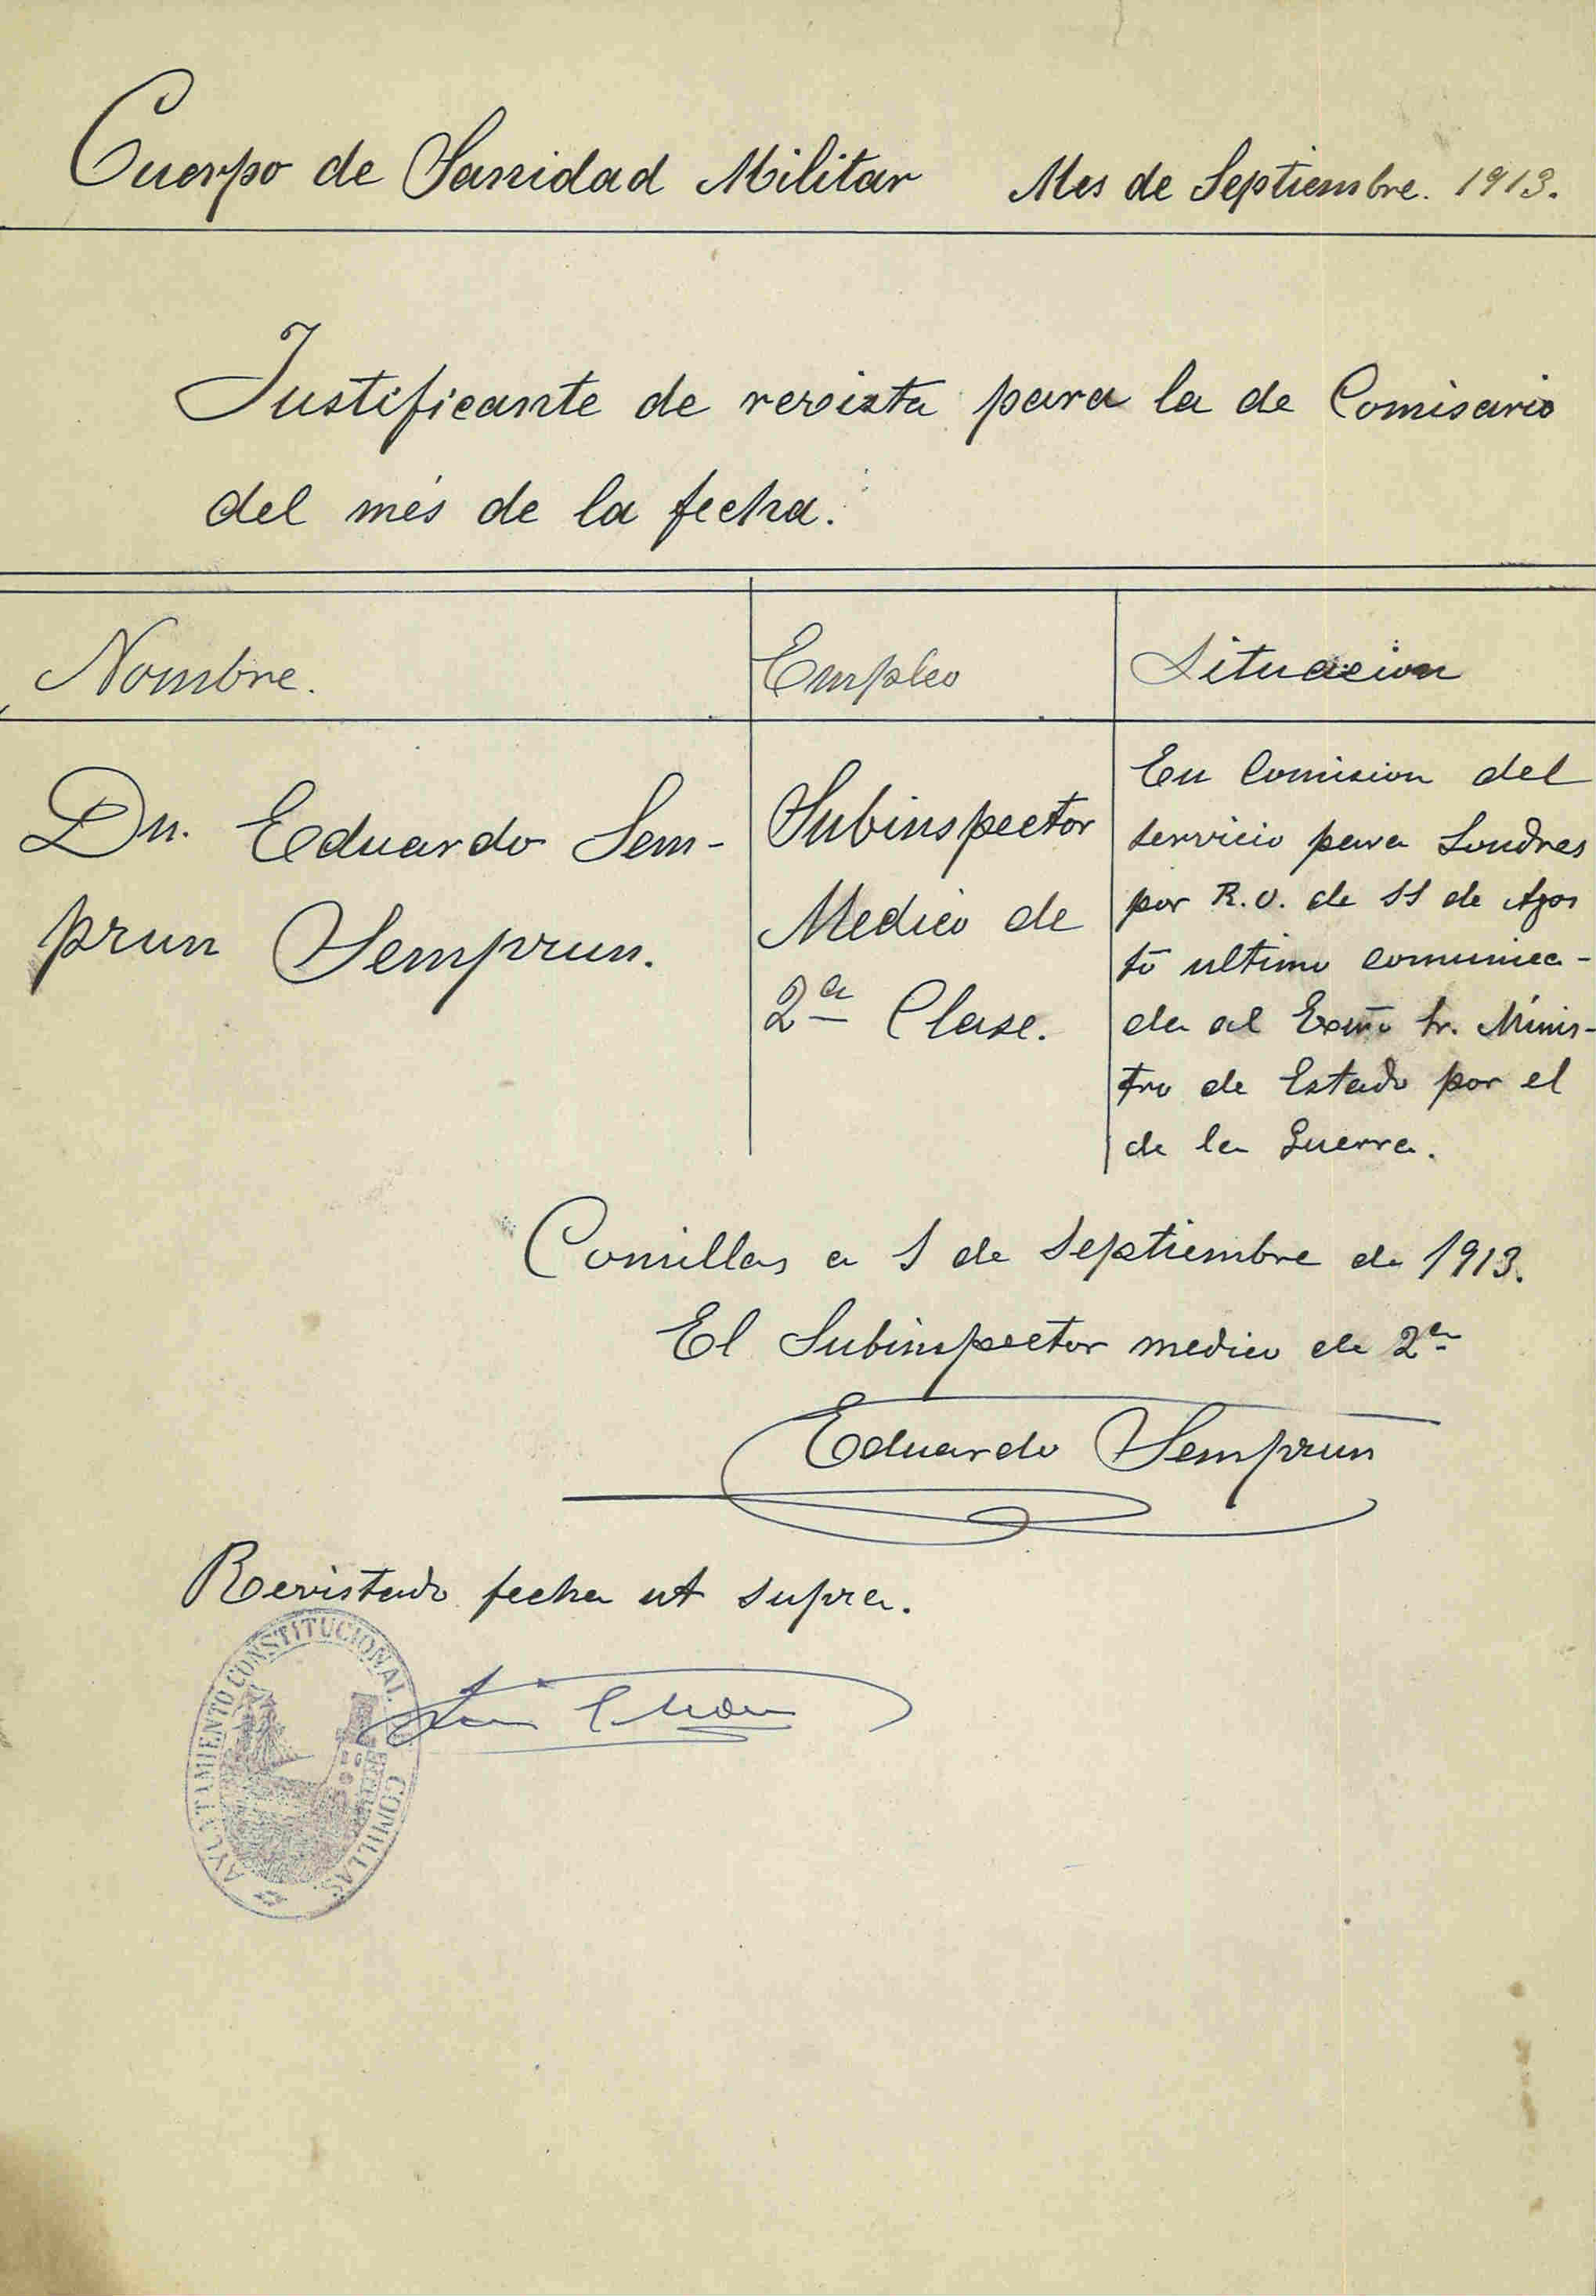 Cuerpo de Sanidad Militar Mes de Septiembre. 1913.
Justificante de revista para la de Comisario
del més de la fecha.
Nombre. Empleo Situacion
Dn. Eduardo Sem-
prun Semprun.
Subinspector
Medico de
2ª Clase.
En Comision del
servicio para Londres
por R.O. de 11 de Agos
to ultimo comunica-
da al Exmo Sr. Minis-
tro de Estado por el
de la Guerra.
Comillas a 1 de Septiembre de 1913.
El Subinspector medico de 2ª
Eduardo Semprun
Revistado fecha ut supra.
AYUNTAMIENTO CONSTITUCIONAL COMILLAS